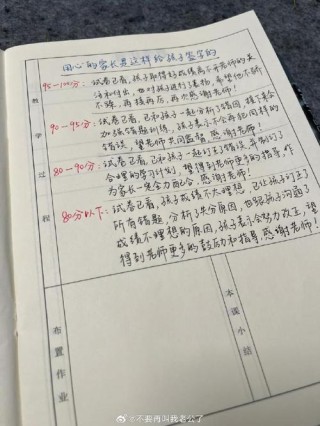 用心的家长是这样给孩子签字的
95-100分：试卷已看，孩子取得好成绩离不开老师的英
语和付出，也对孩子进行了表扬，希望他不骄
不躁，再接再厉，再次感谢老师！
90-95分：试卷已看，已和孩子一起分析了错因，接下来会
加强错题训练，孩子表示不会再犯同样的
错误，望老师共同监督，感谢老师！
80-90分：试卷已看，已和孩子一起订正了错误，并制订了
合理的学习计划，望得到老师更多的指导，作
为家长一定全力配合，感谢老师！
80分以下：试卷已看，孩子成绩不太理想，已让孩子订正了
所有错题，分析了失分原因，也跟孩子沟通了
成绩不理想的原因，孩子表示会努力改正，望
得到老师更多的鼓励和指导，感谢老师！
教学过程
布置作业
本课小结
@不要再叫我老公了